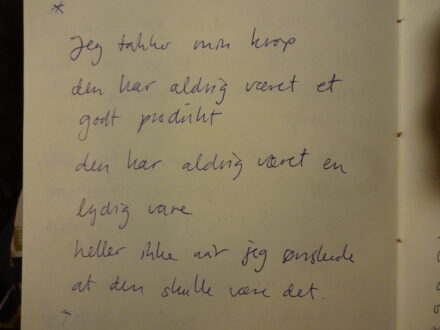 *
Jeg takker min krop
den har aldrig været et
godt produkt
den har aldrig været en
lydig vare
heller ikke når jeg ønskede
at den skulle være det.